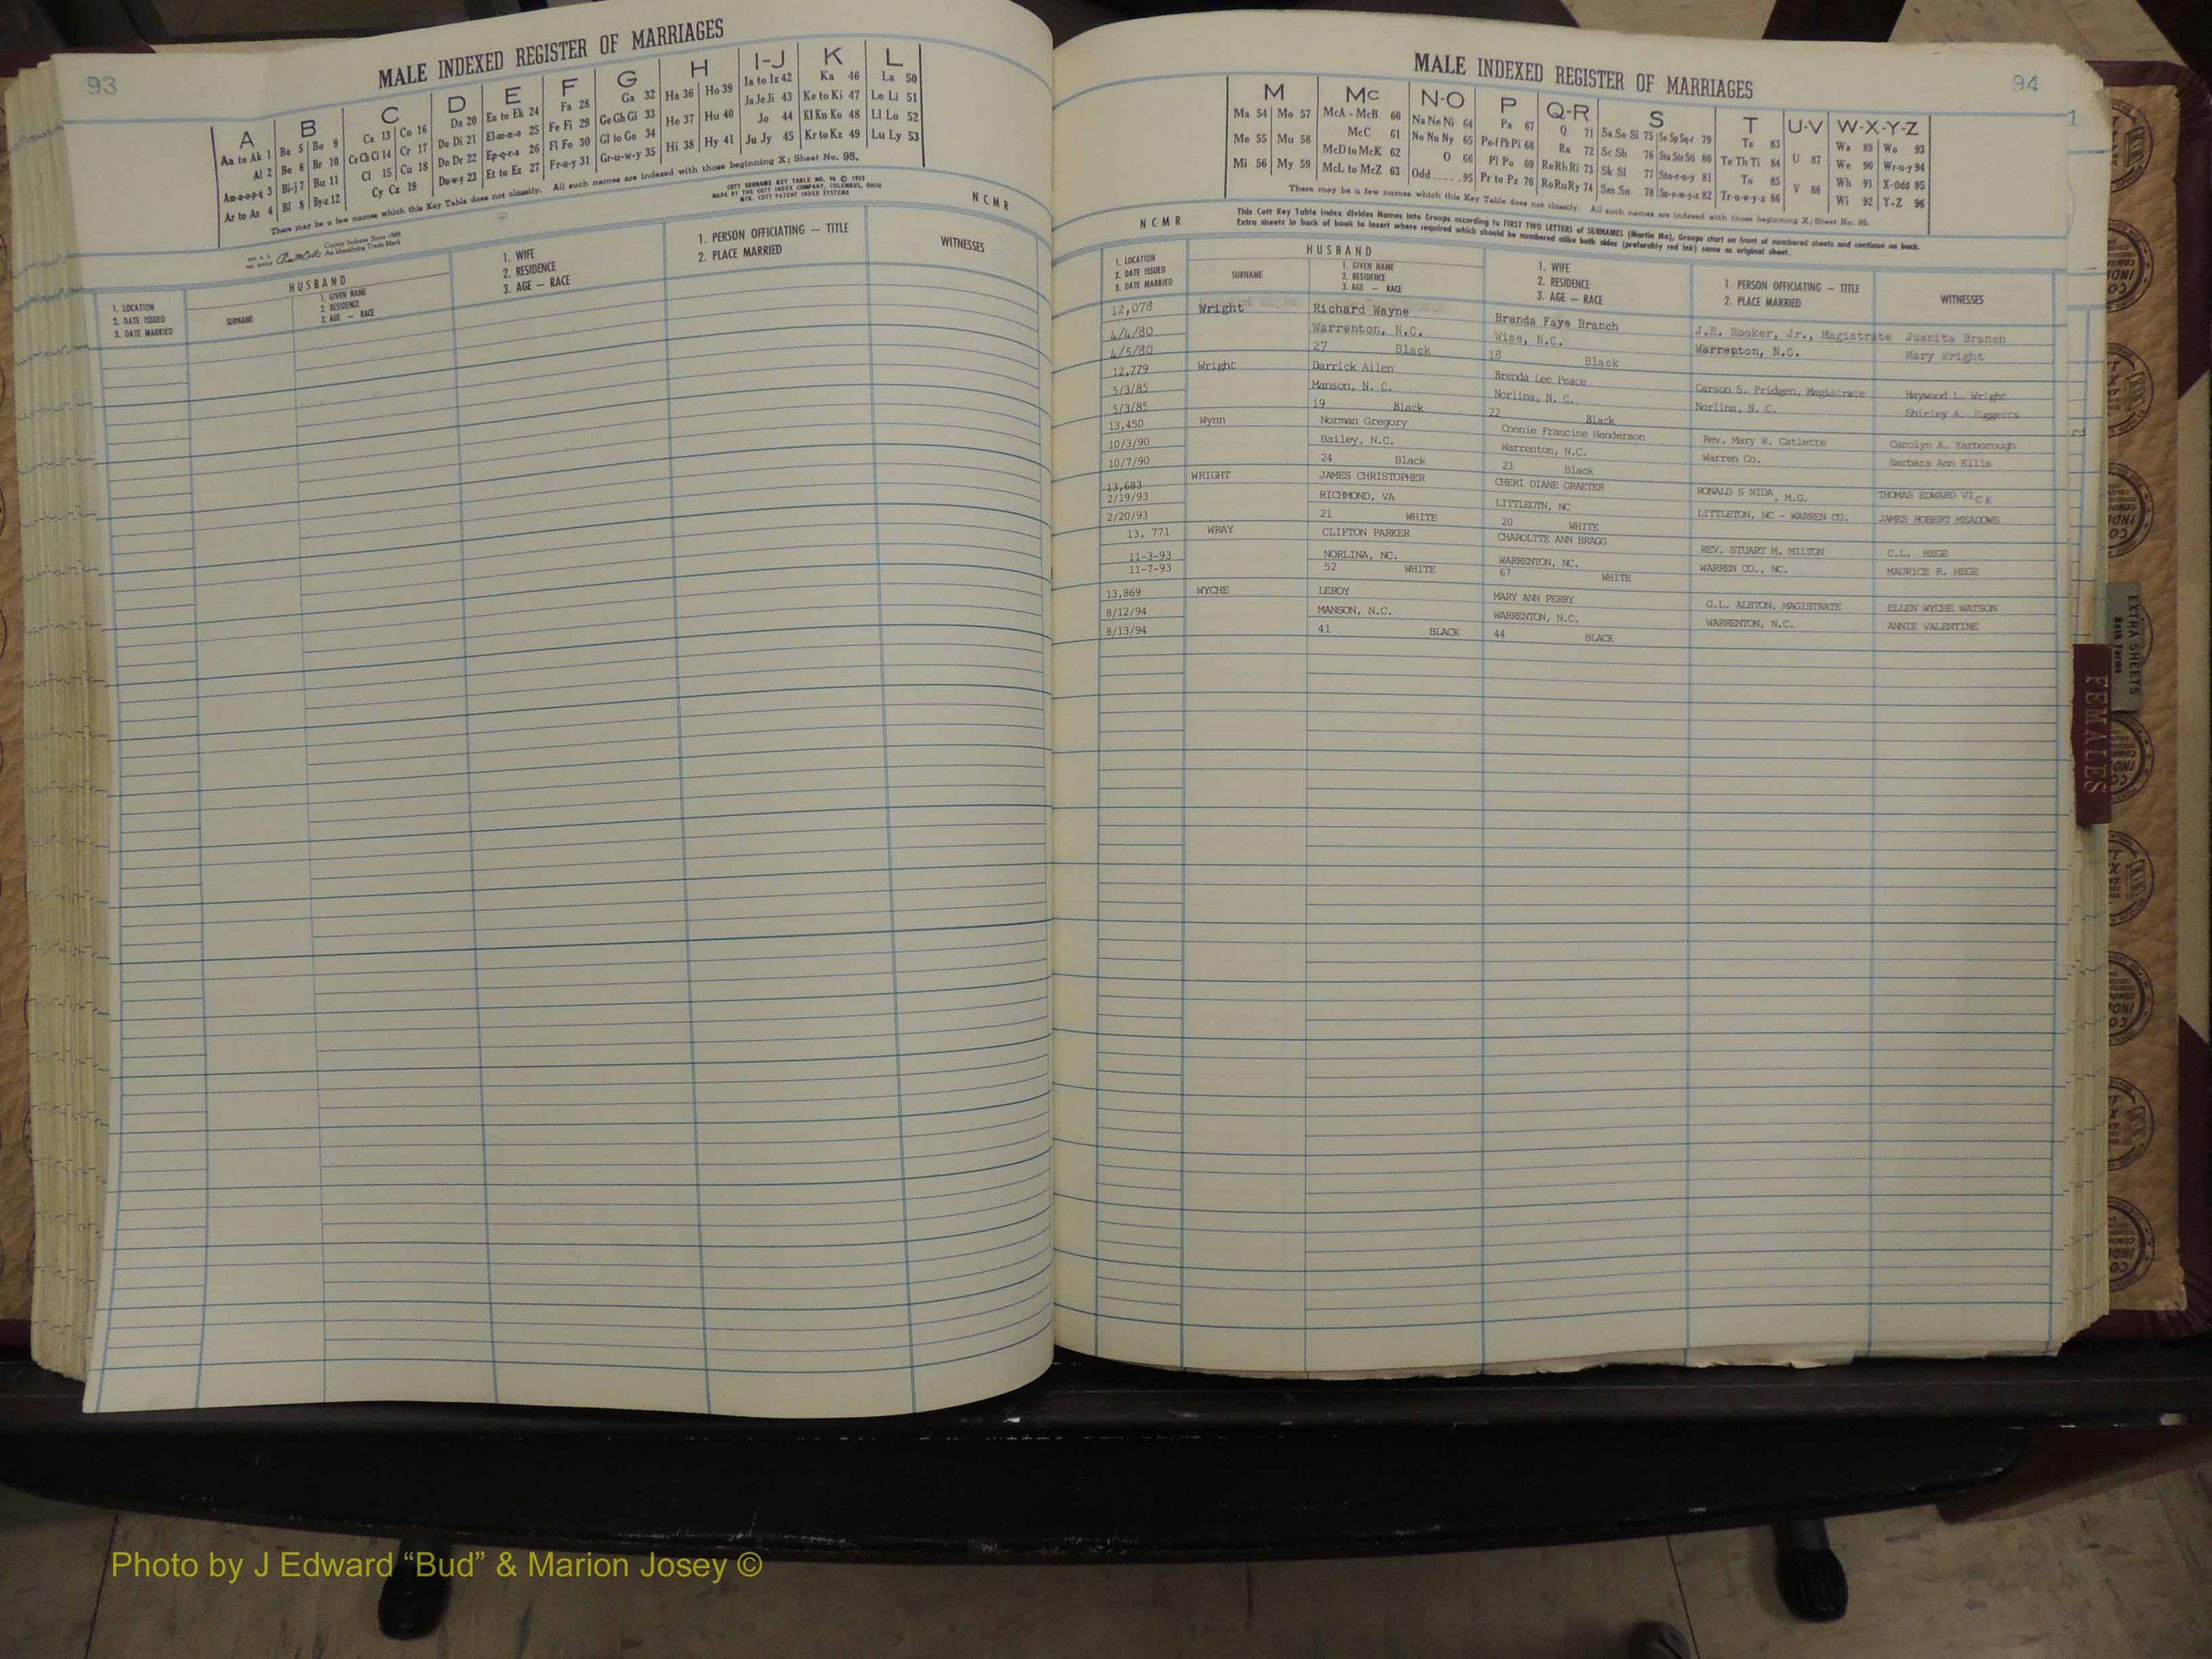 93
MALE INDEXED REGISTER OF MARRIAGES
A B C D E F G H I-J K L
Aa to Ak 1 Ba 5 Bo 9 Ca 13 Co 16 Da 20 Ea to Ek 24 Fa 28 Ga 32 Ha 36 Ho 39 Ia to Iz 42 Ka 46 La 50
Al 2 Be 6 Br 10 Ce Ch Ci 14 Cr 17 De Di 21 El-m-n-o 25 Fe Fi 29 Ge Gh Gi 33 He 37 Hu 40 Ja Je Ji 43 Ke to Ki 47 Le Li 51
Am-n-o-p-q 3 Bi-j 7 Bu 11 Cl 15 Cu 18 Do Dr 22 Ep-q-r-s 26 Fl Fo 30 Gl to Go 34 Hi 38 Hy 41 Jo 44 Kl Kn Ko 48 Ll Lo 52
Ar to Az 4 Bl 8 By-z 12 Cy Cz 19 Du-w-y 23 Et to Ez 27 Fr-u-y 31 Gr-u-w-y 35 Ju Jy 45 Kr to Kz 49 Lu Ly 53
There may be a few names which this Key Table does not classify. All such names are indexed with those beginning X; Sheet No. 95.
COTT SURNAME KEY TABLE NO. 96 ©
MADE BY THE COTT INDEX COMPANY, COLUMBUS, OHIO
MFR. COTT PATENT INDEX SYSTEMS
County Indexes Since 1888
An Identifying Trade Mark
N C M R
1. LOCATION
2. DATE ISSUED
3. DATE MARRIED
HUSBAND
SURNAME
1. GIVEN NAME
2. RESIDENCE
3. AGE — RACE
1. WIFE
2. RESIDENCE
3. AGE — RACE
1. PERSON OFFICIATING — TITLE
2. PLACE MARRIED
WITNESSES
94
MALE INDEXED REGISTER OF MARRIAGES
M Mc N-O P Q-R S T U-V W-X-Y-Z
Ma 54 Mo 57 McA - McB 60 Na Ne Ni 64 Pa 67 Q 71 Sa Se Si 75 So Sp Sq-r 79 Ta 83 Wa 89 Wo 93
Me 55 Mu 58 McC 61 No Nu Ny 65 Pe-f Ph Pi 68 Ra 72 Sc Sh 76 Sta Ste Sti 80 Te Th Ti 84 U 87 We 90 Wr-u-y 94
Mi 56 My 59 McD to McK 62 O 66 Pl Po 69 Re Rh Ri 73 Sk Sl 77 Sto-r-u-y 81 To 85 V 88 Wh 91 X-Odd 95
McL to McZ 63 Odd 95 Pr to Pz 70 Ro Ru Ry 74 Sm Sn 78 Su-v-w-y-z 82 Tr-u-w-y-z 86 Wi 92 Y-Z 96
There may be a few names which this Key Table does not classify. All such names are indexed with those beginning X; Sheet No. 95.
This Cott Key Table Index divides Names into Groups according to FIRST TWO LETTERS of SURNAMES (Martin Ma), Groups start on front of numbered sheets and continue on back.
Extra sheets in back of book to insert where required which should be numbered alike both sides (preferably red ink) same as original sheet.
N C M R
1. LOCATION
2. DATE ISSUED
3. DATE MARRIED
HUSBAND
SURNAME
1. GIVEN NAME
2. RESIDENCE
3. AGE — RACE
1. WIFE
2. RESIDENCE
3. AGE — RACE
1. PERSON OFFICIATING — TITLE
2. PLACE MARRIED
WITNESSES
12,078 Wright Richard Wayne Brenda Faye Branch J.E. Rooker, Jr., Magistrate Juanita Branch
4/4/80 Warrenton, N.C. Wise, N.C. Warrenton, N.C. Mary Wright
4/5/80 27 Black 18 Black
12,779 Wright Darrick Allen Brenda Lee Peace Carson S. Pridgen, Magistrate Haywood L. Wright
5/3/85 Manson, N. C. Norlina, N. C. Norlina, N. C. Shirley A. Jiggetts
5/3/85 19 Black 22 Black
13,450 Wynn Norman Gregory Connie Francine Henderson Rev. Mary R. Catlette Carolyn A. Yarborough
10/3/90 Bailey, N.C. Warrenton, N.C. Warren Co. Barbara Ann Ellis
10/7/90 24 Black 23 Black
13,683 WRIGHT JAMES CHRISTOPHER CHERI DIANE GRAETER RONALD S NIDA, M.G. THOMAS EDWARD VICK
2/19/93 RICHMOND, VA LITTLEOTN, NC LITTLETON, NC - WARREN CO. JAMES ROBERT MEADOWS
2/20/93 21 WHITE 20 WHITE
13, 771 WRAY CLIFTON PARKER CHAROLTTE ANN BRAGG REV. STUART M. MILTON C.L. HEGE
11-3-93 NORLINA, NC. WARRENTON, NC. WARREN CO., NC. MAURICE R. HEGE
11-7-93 52 WHITE 67 WHITE
13,869 WYCHE LEROY MARY ANN PERRY G.L. ALSTON, MAGISTRATE ELLEN WYCHE WATSON
8/12/94 MANSON, N.C. WARRENTON, N.C. WARRENTON, N.C. ANNIE VALENTINE
8/13/94 41 BLACK 44 BLACK
EXTRA SHEETS
Both Forms
FEMALES
Photo by J Edward “Bud” & Marion Josey ©